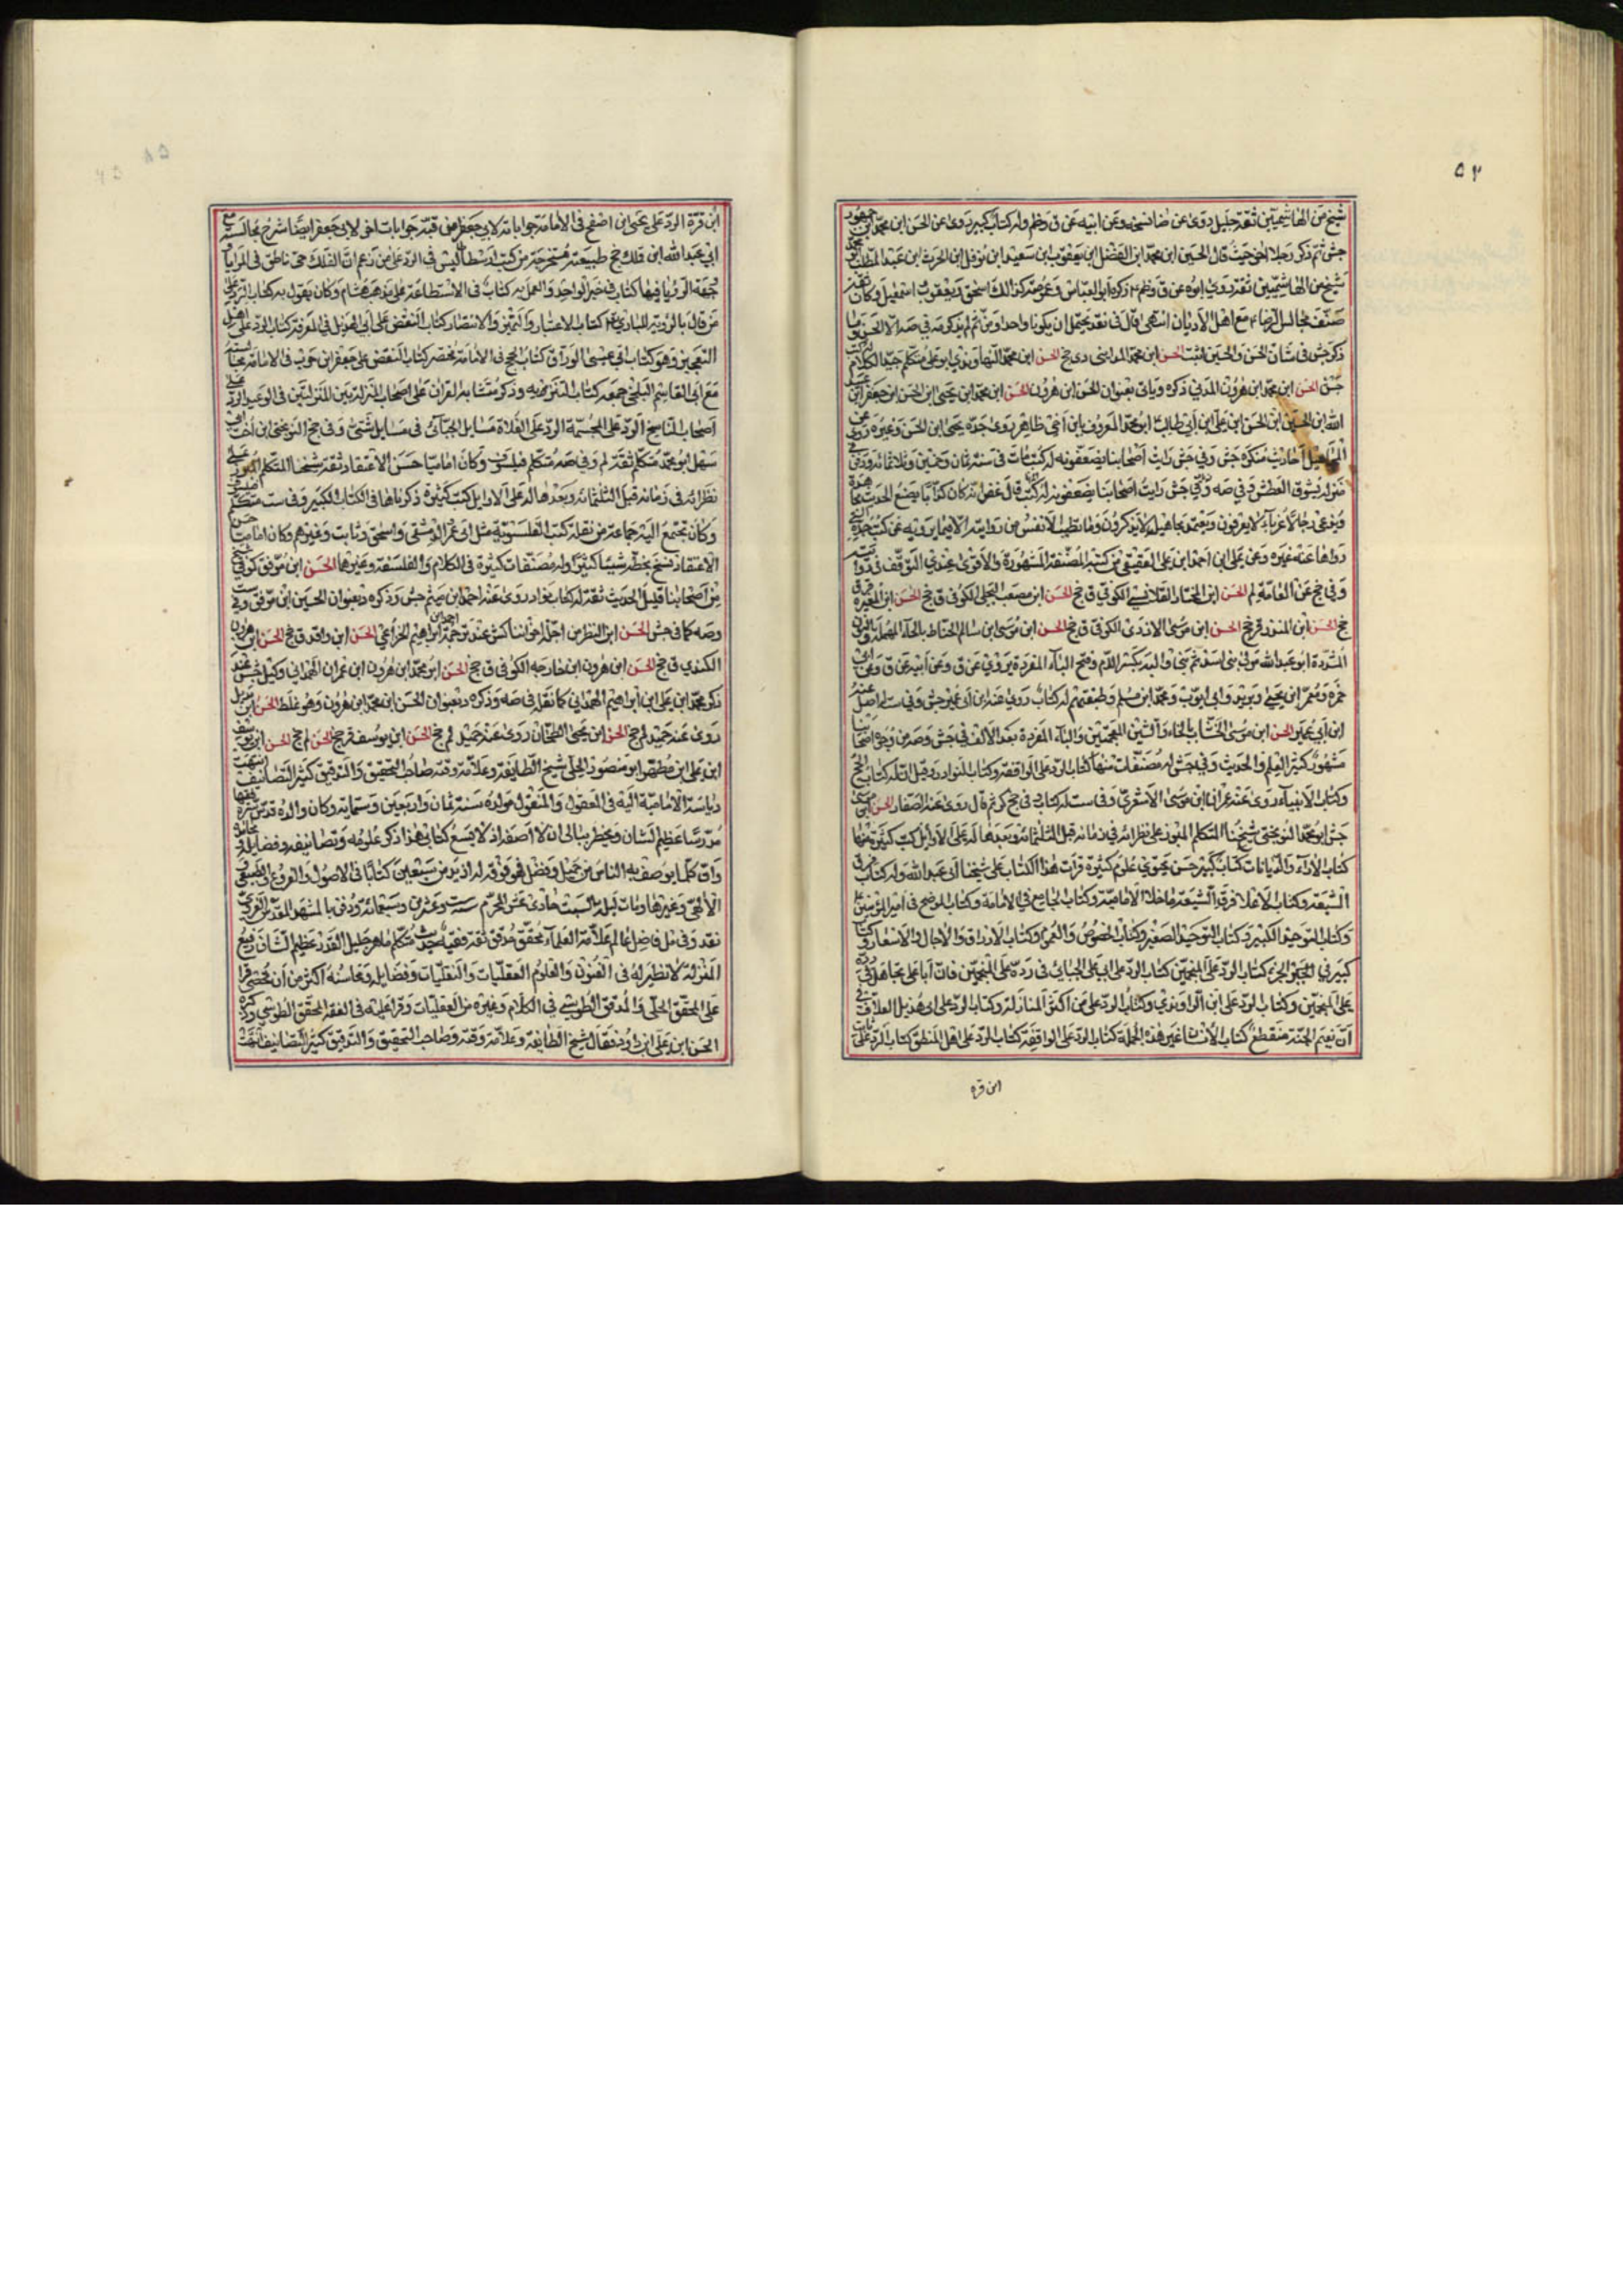 ٥٢
شيخ من الهاشميين ثقة جليل روى عن
حش ثم ذكر رجلا اخر حيث قال الحسين ابن محمد ابن الفضل ابن يعقوب ابن سعيد ابن نوفل ابن الحرث ابن عبد المطلب
شيخ من الهاشميين ثقة روى ابوه عن ق وظم ذكره ابو العباس وعمومته كذلك اسحق ويعقوب واسمعيل وكان ثقة
صنف مجالس الرضا مع اهل الاديان انتهى
ذكر جش في شان الحسن والحسين
جش الحسن ابن محمد ابن هرون الهمداني ذكره وياتي بعنوان الحسن ابن هرون الحسن ابن محمد ابن يحيى ابن الحسن ابن جعفر ابن
الله ابن الحسين ابن الحسن ابن علي ابن ابي طالب ابو محمد المعروف بابن اخي طاهر روى جده يحيى ابن الحسن وغيره روى عن
المجاهيل احاديث منكرة جش وفي جش رايت اصحابنا يضعفونه له كتب مات في سنة ثمان وخمسين وثلاثمائة ودفن
منزله بسوق العطش وفي صه
ويدعي رجالا غرباء لا يعرفون ويعتمد مجاهيل لا يذكرون وما تطيب الانفس من روايته الا فيما يرويه من كتب جده التي
رواها عنه غيره وعن علي ابن احمد ابن علي العقيقي من كتبه المصنفة المشهورة والاقوى عندي التوقف في روايته
وفي جخ عن العامة لم الحسن ابن المختار القلانسي الكوفي ق جخ الحسن ابن مصعب البجلي الكوفي ق جخ الحسن ابن المغيره
جخ الحسن ابن المنذر قر جخ الحسن ابن موسى الازدي الكوفي ق جخ الحسن ابن موسى ابن سالم الحناط بالحاء المهملة والنون
المشددة ابو عبد الله مولى بني اسد ثم بني والبة بكسر اللام وفتح الباء المفردة يروي عن ق وعن ابيه عن ق وعن ابي
حمزة ومعمر ابن يحيى وبريد وابي ايوب ومحمد ابن مسلم وطبقتهم له كتاب روى عنه ابن ابي عمير جش وفي ست له اصل عنه
ابن ابي عمير الحسن ابن موسى الخشاب بالخاء والشين المعجمتين والباء المفردة بعد الالف في جش وصه من وجوه اصحابنا
مشهور كثير العلم والحديث وفي جش له مصنفات منها كتاب الرد على الواقفة وكتاب النوادر وقيل ان له كتاب الحج
وكتاب الانبياء روى عنه عمران ابن موسى الاشعري وفي ست له كتاب
جش ابو محمد النوبختي شيخنا المتكلم المبرز على نظرائه في زمانه قبل الثلثمائة وبعدها له على الاوايل كتب كثيرة منها
كتاب الآراء والديانات كتاب كبير حسن يحتوي علوم كثيرة قرات هذا الكتاب على شيخنا ابي عبد الله وله كتاب فرق
الشيعة وكتاب الرد على فرق الشيعة ما خلا الامامية وكتاب الجامع في الامامة وكتاب الموضح في امير المؤمنين
وكتاب التوحيد الكبير وكتاب التوحيد الصغير وكتاب الخصوص والعموم وكتاب الارزاق والاجال والاسعار وكتاب
كبير في الجبر كتاب الرد على المنجمين كتاب الرد على ابي علي الجبائي في رده على المنجمين
على المنجمين وكتاب الرد على ابن الراوندي وكتاب الرد على من اكثر المنازلة وكتاب الرد على ابي هذيل العلاف في
ان نعيم الجنة منقطع كتاب الانسان غير هذه الجملة كتاب الرد على الواقفة كتاب الرد على اهل المنطق كتاب الرد على ثابت
ابن قره
ابن قرة الرد على يحيى ابن اصفح في الامامة جواباته لابي جعفر ابن قبة جوابات اخر لابي جعفر ايضا شرح مجالسه مع
ابي عبد الله ابن مملك جج طبيعية مستخرجة من كتب ارسطاطاليس في الرد على من زعم ان الفلك حي ناطق في المرايا
وجهة الرؤيا فيها كتاب في خبر الواحد والعمل به كتاب في الاستطاعة على مذهب هشام وكان يقول به كتاب الرد على
من قال بالرؤية للباري كتاب الاعتبار والتمييز والانتصار كتاب النقض على ابي الهذيل في المعرفة كتاب الرد على اهل
التعجيز وهو كتاب ابي عيسى الوراق كتاب الحجج في الامامة مختصر كتاب النقض على جعفر ابن حرب في الامامة مجالسه
مع ابي القاسم البلخي جمعه كتاب التنزيه وذكر متشابه القران على اصحاب المنزلة بين المنزلتين في الوعيد الرد على
اصحاب التناسخ الرد على المجسمة الرد على الغلاة مسايل الجبائي في مسايل شتى وفي جخ النوبختي ابن اخت ابي
سهل ابو محمد متكلم ثقة لم وفي صه متكلم فيلسوف وكان اماميا حسن الاعتقاد ثقة شيخنا المتكلم المبرز على
نظرائه في زمانه قبل الثلثمائة وبعدها له على الاوايل كتب كثيرة ذكرناها في الكتاب الكبير وفي ست متكلم
وكان يجتمع اليه جماعة من نقلة كتب الفلسفة مثل ابي عثمن الدمشقي واسحق وثابت وغيرهم وكان اماميا حسن
الاعتقاد نسخ بخطه شيئا كثيرا وله مصنفات كثيرة في الكلام والفلسفة وغيرها الحسن ابن موفق كوفي شيخ
من اصحابنا قليل الحديث ثقة له كتاب نوادر روى عنه احمد ابن ميثم جش وذكره بعنوان الحسين ابن موفق وفي ست
وصه كما في جش الحسن ابن النضر من اجلة اخواننا كش عند ترجمة احمد ابن ابراهيم
الكندي ق جخ الحسن ابن هرون ابن خارجه الكوفي ق جخ الحسن ابن محمد ابن هرون ابن عمران الهمداني وكيل جش عند
ذكر محمد ابن علي ابن ابراهيم الهمداني كما نقله في صه وذكره بعنوان الحسن ابن محمد ابن هرون وهو غلط الحسن
روى عنه حميد لم جخ الحسن ابن يحيى الطحان روى عنه حميد لم جخ الحسن ابن يوسف قر جخ الحسن لم جخ الحسن ابن يوسف
ابن علي ابن مطهر ابو منصور الحلي شيخ الطايفة وعلامة وقته صاحب التحقيق والتدقيق كثير التصانيف انتهت
رياسة الامامية اليه في المعقول والمنقول مولده سنة ثمان واربعين وستمائة وكان والده قدس سره فقيها
مدرسا عظيم الشان ويخطر ببالي ان لا اصفه اذ لا يسع كتابي هذا ذكر علومه وتصانيفه وفضايله ومحامده
وان كل ما يوصف به الناس من جميل وفضل فهو فوقه له ازيد من سبعين كتابا في الاصول والفروع والطبيعي و
الالهي وغيرها ومات ليلة السبت حادي عشر المحرم سنة ست وعشرين وسبعمائة ودفن بالمشهد المقدس الغروي
نقد وفي مل فاضل عالم علامة العلماء محقق مدقق ثقة فقيه محدث متكلم ماهر جليل القدر عظيم الشان رفيع
المنزلة لا نظير له في الفنون والعلوم العقليات والنقليات وفضايله ومحاسنه اكثر من ان تحصى قرا
على المحقق الحلي والمدقق الطوسي في الكلام وغيره من العقليات وقرا عليه في الفقه المحقق الطوسي وذكره
الحسن ابن علي ابن داود فقال شيخ الطايفة وعلامة وقته وصاحب التحقيق والتدقيق كثير التصانيف انتهت